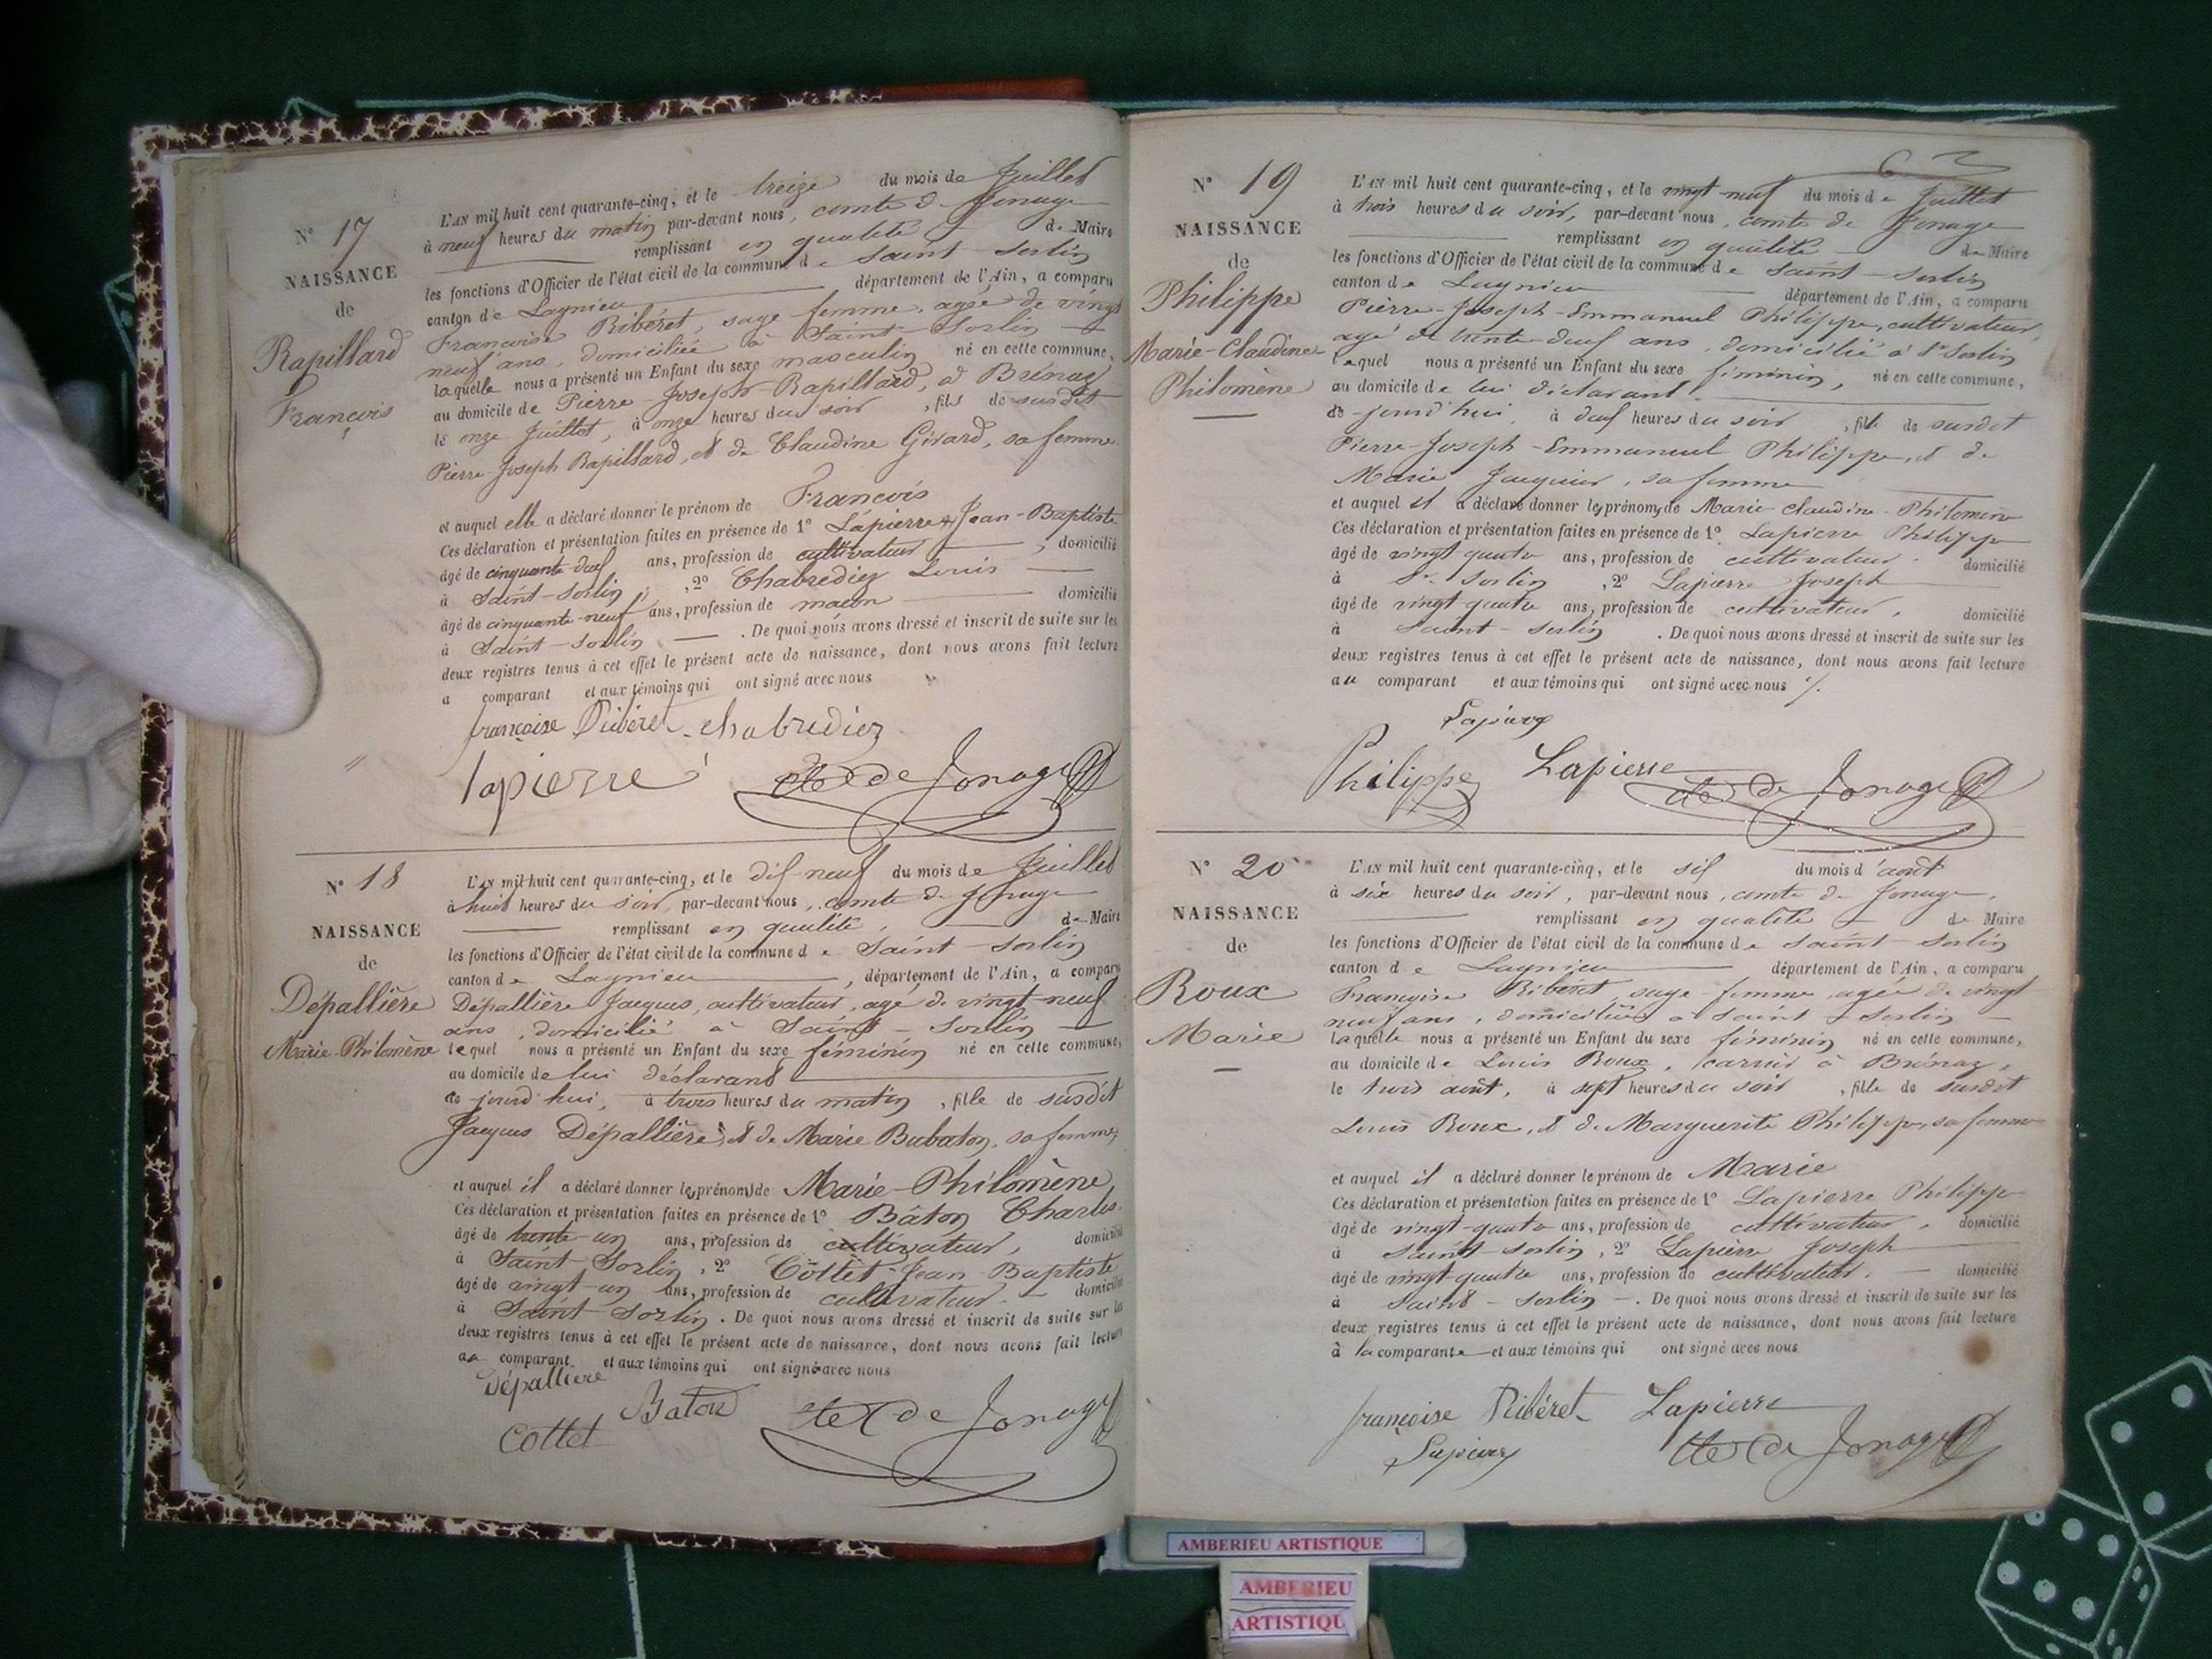 N° 17
NAISSANCE
de
Rapillard
François
L'AN mil huit cent quarante-cinq, et le treize du mois de Juillet
à neuf heures du matin par-devant nous, comte de Jonage
remplissant en qualité de Maire
les fonctions d'Officier de l'état civil de la commune de Saint-Sorlin
canton de Lagnieu département de l'Ain, a comparu
Françoise Ribéret, sage-femme, agée de vingt
neuf ans, domiciliée à Saint-Sorlin
laquelle nous a présenté un Enfant du sexe masculin né en cette commune,
au domicile de Pierre-Joseph Rapillard, à Brénaz
le onze Juillet, à onze heures du soir, fils de susdit
Pierre-Joseph Rapillard, et de Claudine Girard, sa femme
et auquel elle a déclaré donner le prénom de François
Ces déclaration et présentation faites en présence de 1° Lapierre Jean-Baptiste
âgé de cinquante-deux ans, profession de cultivateur, domicilié
à Saint-Sorlin, 2° Chabrediez Louis
âgé de cinquante-neuf ans, profession de maçon domicilié
à Saint-Sorlin. De quoi nous avons dressé et inscrit de suite sur les
deux registres tenus à cet effet le présent acte de naissance, dont nous avons fait lecture
a comparant et aux témoins qui ont signé avec nous
françoise Ribéret chabrediez
lapierre cte de Jonage
N° 18
NAISSANCE
de
Dépallière
Marie-Philomène
L'AN mil huit cent quarante-cinq, et le dix neuf du mois de Juillet
à huit heures du soir, par-devant nous, comte de Jonage
remplissant en qualité de Maire
les fonctions d'Officier de l'état civil de la commune de Saint-Sorlin
canton de Lagnieu, département de l'Ain, a comparu
Dépallière Jacques, cultivateur, agé de vingt-neuf
ans, domicilié à Saint-Sorlin
lequel nous a présenté un Enfant du sexe féminin né en cette commune,
au domicile de lui déclarant
ce jourd'hui, à trois heures du matin, fille de susdit
Jacques Dépallière, et de Marie Bubaton, sa femme
et auquel il a déclaré donner les prénoms de Marie-Philomène
Ces déclaration et présentation faites en présence de 1° Bâton Charles
âgé de trente-un ans, profession de cultivateur, domicilié
à Saint-Sorlin, 2° Côttet Jean-Baptiste
âgé de vingt-un ans, profession de cultivateur domicilié
à Saint-Sorlin. De quoi nous avons dressé et inscrit de suite sur les
deux registres tenus à cet effet le présent acte de naissance, dont nous avons fait lecture
au comparant et aux témoins qui ont signé avec nous
Dépallière
Baton cte de Jonage
Cottet
N° 19
NAISSANCE
de
Philippe
Marie-Claudine
Philomène
L'AN mil huit cent quarante-cinq, et le vingt-neuf du mois de Juillet
à trois heures du soir, par-devant nous, comte de Jonage
remplissant en qualité de Maire
les fonctions d'Officier de l'état civil de la commune de Saint-Sorlin
canton de Lagnieu département de l'Ain, a comparu
Pierre-Joseph-Emmanuel Philippe, cultivateur,
agé de trente-deux ans, domicilié à St Sorlin
lequel nous a présenté un Enfant du sexe féminin, né en cette commune,
au domicile de lui déclarant
ce jourd'hui, à deux heures du soir, fille de susdit
Pierre-Joseph-Emmanuel Philippe, et de
Marie Jacquier, sa femme
et auquel il a déclaré donner les prénoms de Marie-Claudine-Philomène
Ces déclaration et présentation faites en présence de 1° Lapierre Philippe
âgé de vingt-quatre ans, profession de cultivateur domicilié
à St Sorlin, 2° Lapierre Joseph
âgé de vingt-quatre ans, profession de cultivateur, domicilié
à Saint-Sorlin. De quoi nous avons dressé et inscrit de suite sur les
deux registres tenus à cet effet le présent acte de naissance, dont nous avons fait lecture
au comparant et aux témoins qui ont signé avec nous
Lapierre
Philippe Lapierre cte de Jonage
N° 20
NAISSANCE
de
Roux
Marie
L'AN mil huit cent quarante-cinq, et le six du mois d'août
à six heures du soir, par-devant nous, comte de Jonage,
remplissant en qualité de Maire
les fonctions d'Officier de l'état civil de la commune de Saint-Sorlin
canton de Lagnieu département de l'Ain, a comparu
Françoise Ribéret, sage-femme, agée de vingt
neuf ans, domiciliée à Saint-Sorlin
laquelle nous a présenté un Enfant du sexe féminin né en cette commune,
au domicile de Louis Roux, carrier à Brénaz,
le trois août, à sept heures du soir, fille de susdit
Louis Roux, et de Marguerite Philippe, sa femme
et auquel il a déclaré donner le prénom de Marie
Ces déclaration et présentation faites en présence de 1° Lapierre Philippe
âgé de vingt-quatre ans, profession de cultivateur, domicilié
à Saint-Sorlin, 2° Lapierre Joseph
âgé de vingt-quatre ans, profession de cultivateur. domicilié
à Saint-Sorlin. De quoi nous avons dressé et inscrit de suite sur les
deux registres tenus à cet effet le présent acte de naissance, dont nous avons fait lecture
à la comparante et aux témoins qui ont signé avec nous
françoise Ribéret Lapierre
Lapierre cte de Jonage
AMBERIEU ARTISTIQUE
AMBERIEU
ARTISTIQU